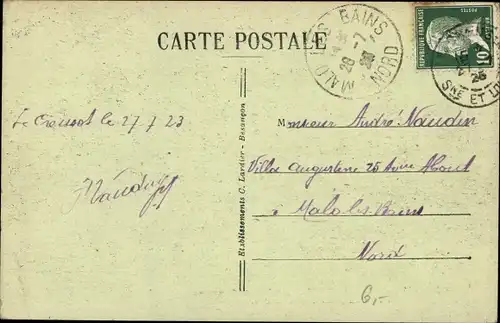 CARTE POSTALE
MALO LES BAINS
28 -7
NORD
REPUBLIQUE FRANÇAISE
POSTES
10
SNE ET
Le Creusot le 27/7 23
Monsieur André Naudin
Villa Augustine 25 Avenue
Malo les Bains
Nord
Etablissements C. Lardier - Besançon
6,-